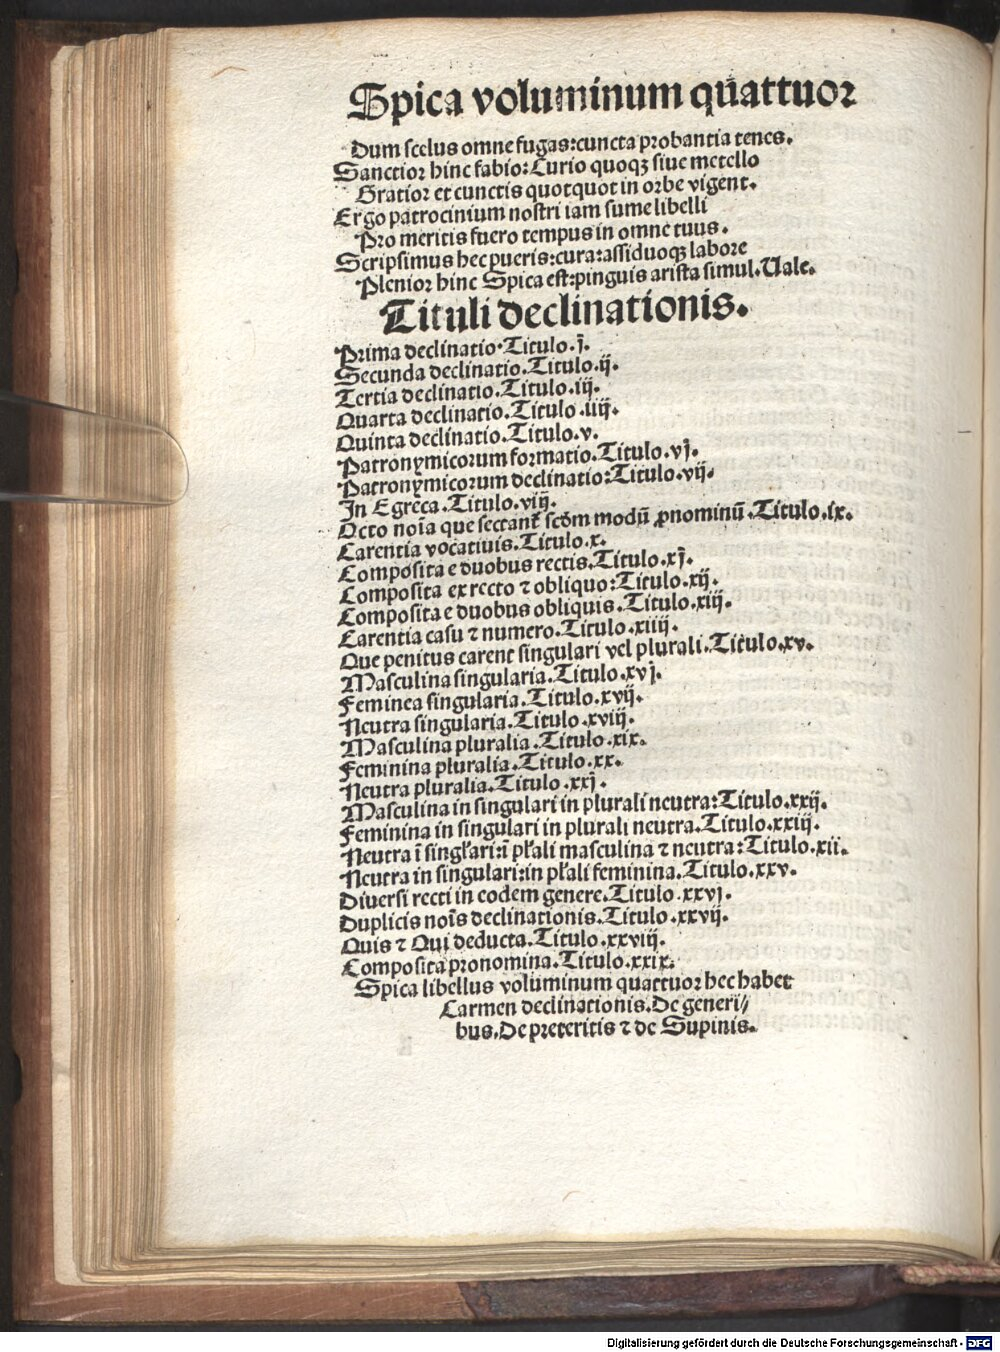 Spica voluminum qũattuor
Dum scelus omne fugas:cuncta probantia tenes.
Sanctior hinc fabio:Curio quoqꝫ siue metello
Gratior et cunctis quotquot in orbe vigent.
Ergo patrocinium nostri iam sume libelli
Pro meritis fuero tempus in omne tuus.
Scripsimus hec pueris:cura:assiduoqꝫ labore
Plenior hinc Spica est:pinguis arista simul.Uale.
Tituli declinationis.
Prima declinatio.Titulo.j.
Secunda declinatio.Titulo.ij.
Tertia declinatio.Titulo.iij.
Quarta declinatio.Titulo.iiij.
Quinta declinatio.Titulo.v.
Patronymicorum formatio.Titulo.vj.
Patronymicorum declinatio:Titulo.vij.
In E greca.Titulo.viij.
Octo noĩa que sectant᷑ scd̃m modũ ꝓnominũ.Titulo.ix.
Carentia vocatiuis.Titulo.x.
Composita e duobus rectis.Titulo.xj.
Composita ex recto ⁊ obliquo:Titulo.xij.
Composita e duobus obliquis.Titulo.xiij.
Carentia casu ⁊ numero.Titulo.xiiij.
Que penitus carent singulari vel plurali.Titulo.xv.
Masculina singularia.Titulo.xvj.
Feminea singularia.Titulo.xvij.
Neutra singularia.Titulo.xviij.
Masculina pluralia.Titulo.xix.
Feminina pluralia.Titulo.xx.
Neutra pluralia.Titulo.xxj.
Masculina in singulari in plurali neutra:Titulo.xxij.
Feminina in singulari in plurali neutra.Titulo.xxiij.
Neutra ĩ singl̃ari:ĩ pl̃ali masculina ⁊ neutra:Titulo.xii.
Neutra in singulari:in pl̃ali feminina.Titulo.xxv.
Diuersi recti in eodem genere.Titulo.xxvj.
Duplicis noĩs declinationis.Titulo.xxvij.
Quis ⁊ Qui deducta.Titulo.xxviij.
Composita pronomina.Titulo.xxix.
Spica libellus voluminum quattuor hec habet
Carmen declinationis.De generi//
bus.De preteritis ⁊ de Supinis.
Digitalisierung gefördert durch die Deutsche Forschungsgemeinschaft - DFG